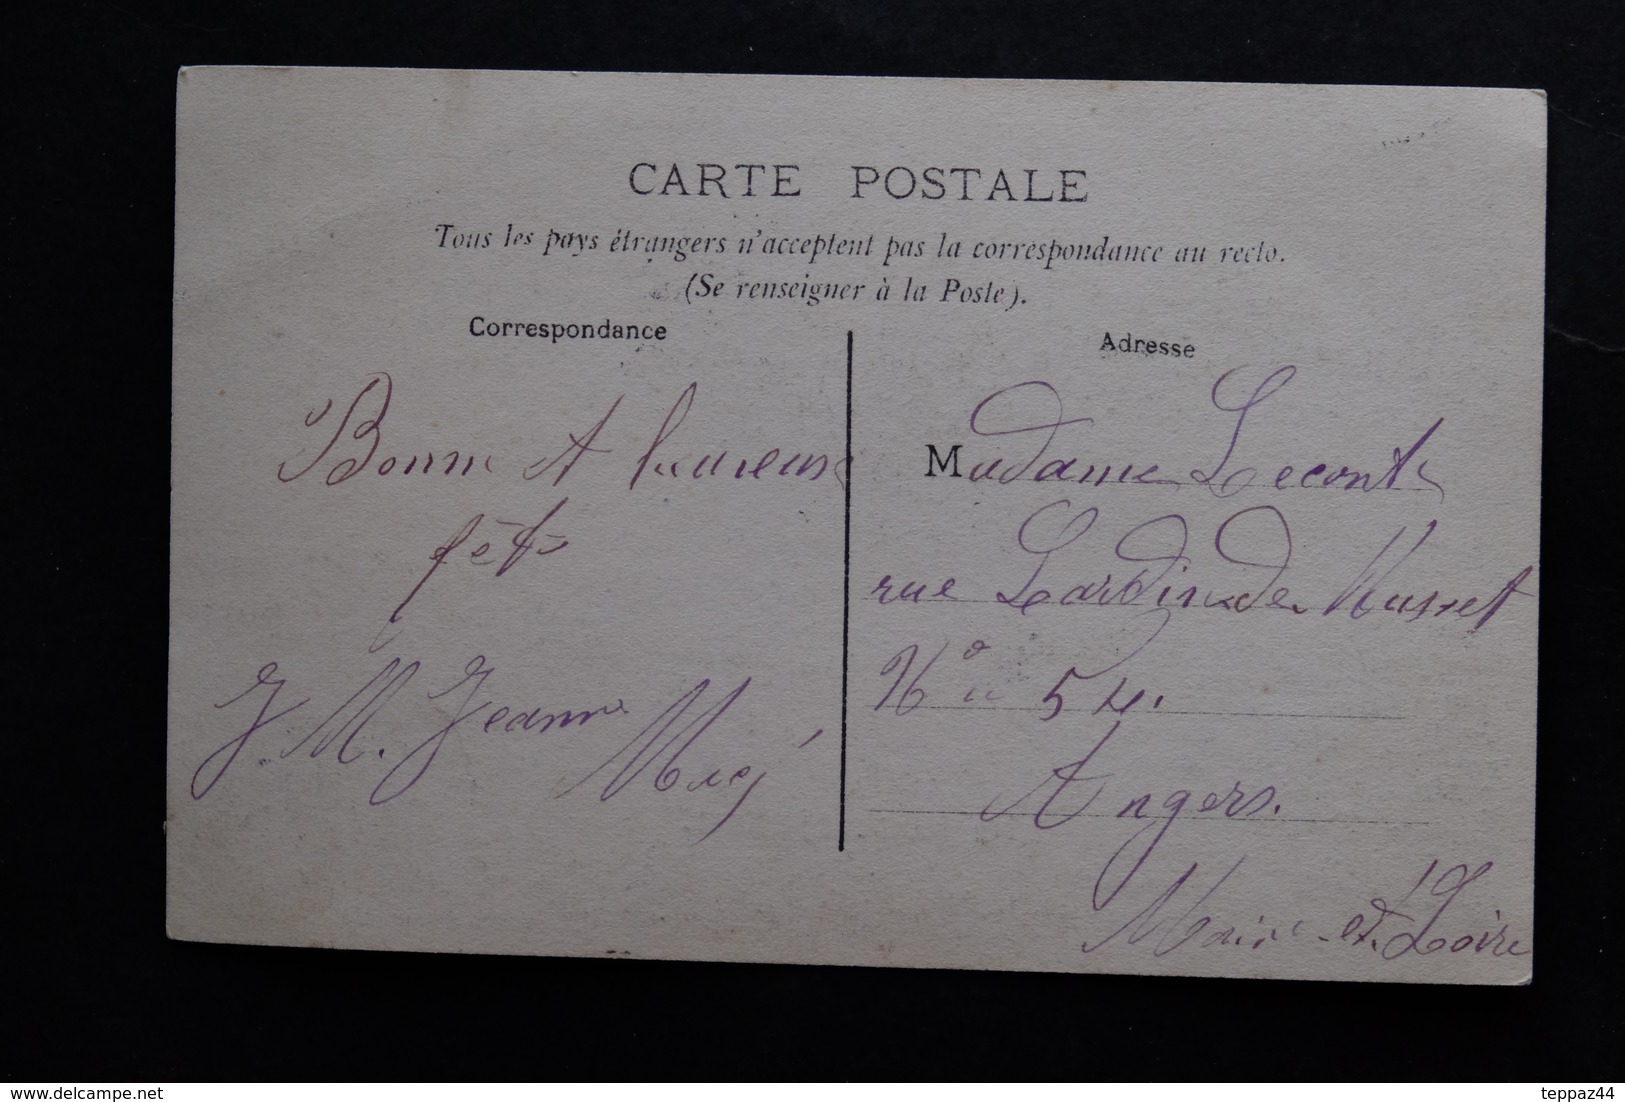 CARTE POSTALE
Tous les pays étrangers n'acceptent pas la correspondance au recto.
(Se renseigner à la Poste).
Correspondance
Bonne et heureuse
fête
J. M. Jeanne
Adresse
Madame Leconte
rue Lardin de Musset
No 54.
Angers.
Maine-et-Loire
https://www.delcampe.net
teppaz44